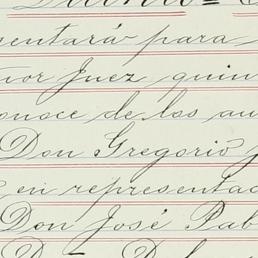 sentará para
ñor Juez quin
onoce de los au
Don Gregorio
en representac
Don José Pab